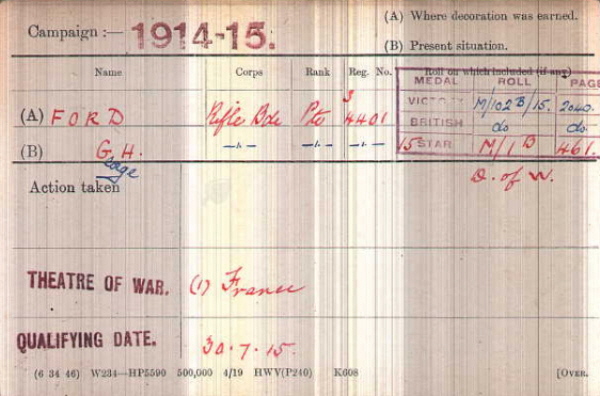 (A) Where decoration was earned.
Campaign :— 1914-15.
(B) Present situation.
Name Corps Rank Reg. No. Roll on which included (if any)
MEDAL ROLL PAGE
VICTORY M/102 B/15. 2040.
(A) FORD Rifle Bde Pte 3 4401
BRITISH do do.
(B) G.H. —"— —"— —"— 15 STAR M/1 B 461.
Action taken D. of W.
THEATRE OF WAR. (1) France
QUALIFYING DATE. 30.7.15.
(6 34 46) W234—HP5590 500,000 4/19 HWV(P240) K608 [OVER.